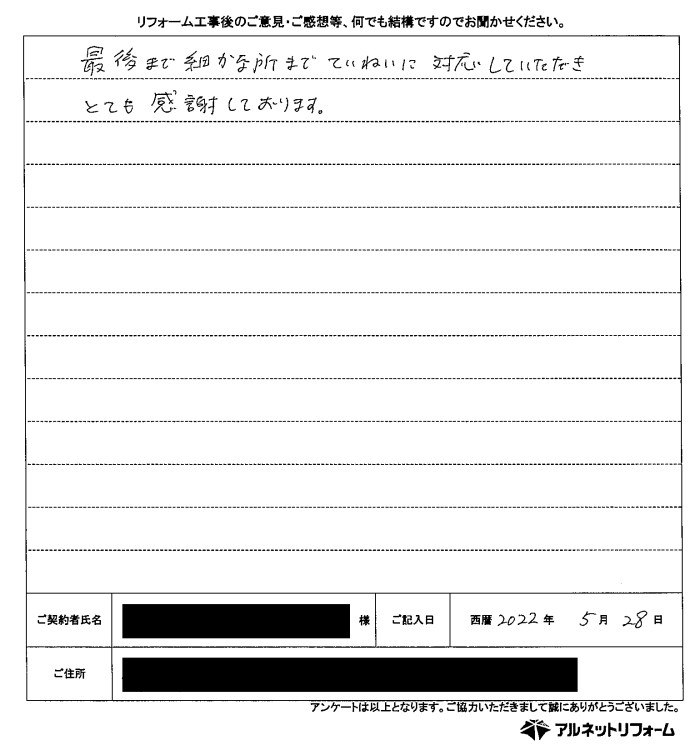 リフォーム工事後のご意見・ご感想等、何でも結構ですのでお聞かせください。
最後まで細かな所までていねいに対応していただき
とても感謝しております。
ご契約者氏名 様 ご記入日 西暦2022年 5月 28日
ご住所
アンケートは以上となります。ご協力いただきまして誠にありがとうございました。
アルネットリフォーム